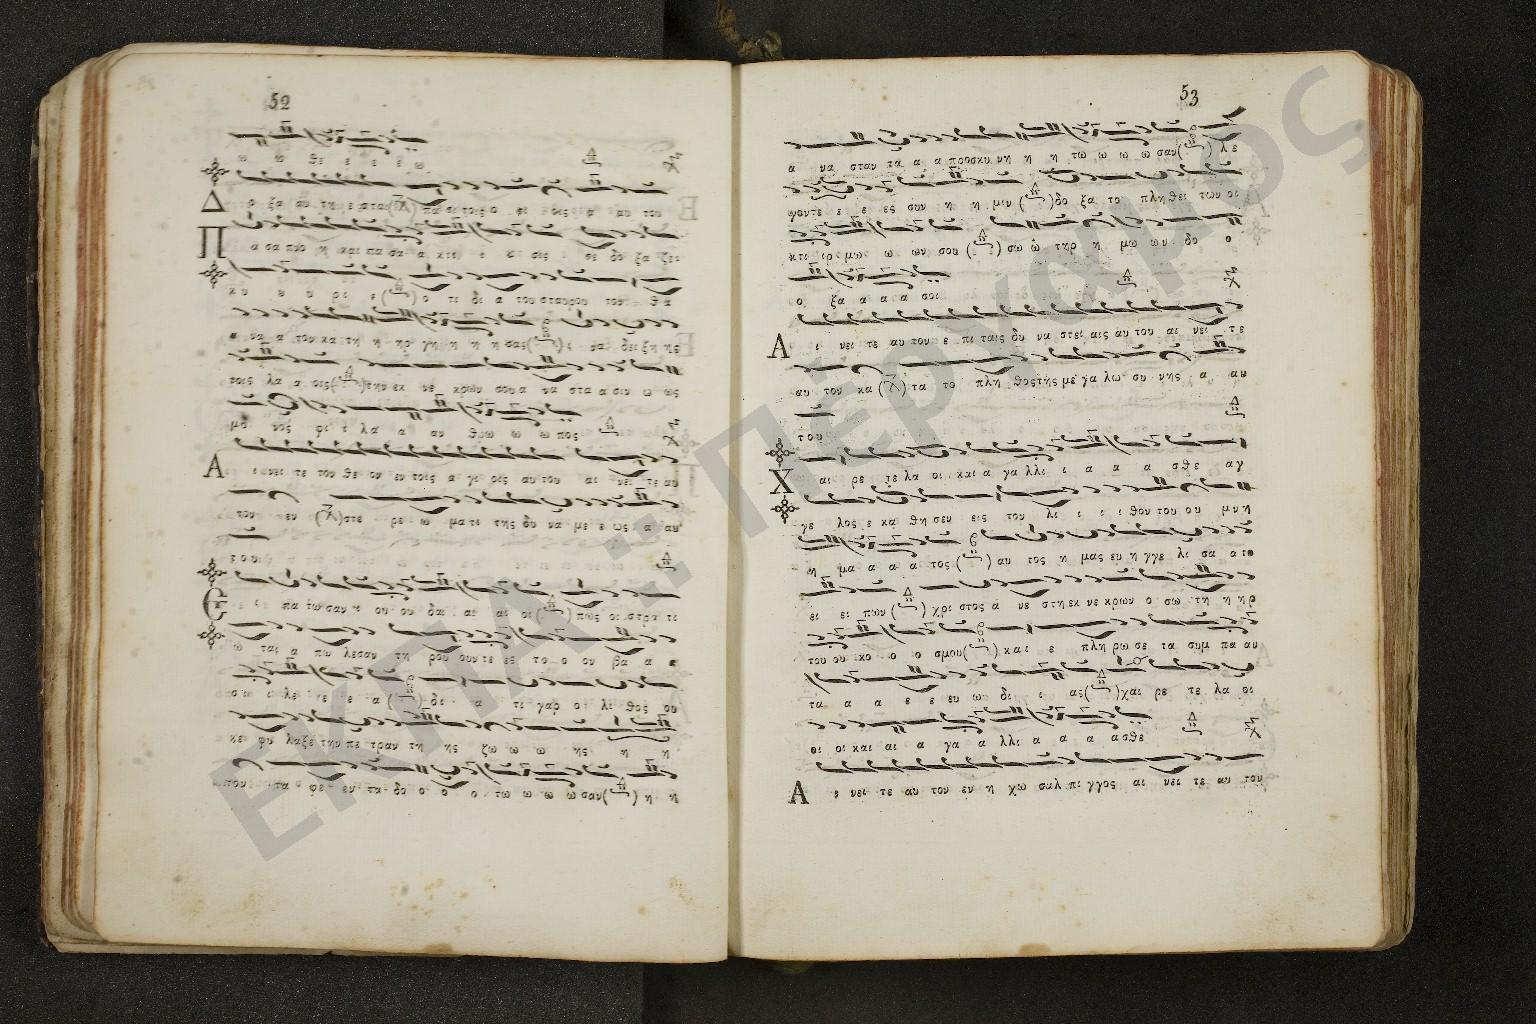 52
ω ω θε ε ε ε ω
Δ ο ξα αυ τη ε σται πα σι τοις ο σι οις α αυ του
Π α σα πνο η και πα σα α κτι ι ι σις σε δο ξα ζει
κυ υ υ ρι ε ο τι δι α του σταυρου τον θα
α να α τον κα τη η ηρ γη η η η σας ι να δει ξη ης
τοις λα α οις την εκ νε κρων σου α να στα α σιν ω ως
μο νος φι ι λα α αν θρω ω ω πος
Α ι νει τε τον θε ον εν τοις α γι οις αυ του αι νει τε αυ
τον εν στε ρε ω μα τι της δυ να με ε ως α αυ
του
Ε ι πα τω σαν ι ου ου δαι αι αι οι πως οι στρα τι
ω ται α πω λεσαν τη ρου ουν τε ες το ο ον βα α α
σι ι λε ε ε ε α δι α τι γαρ ο λι θος ου
κε φυ λαξε την πε τραν τη ης ζω ω ω ης η η
τον τα φε εν τα δο ο ο ο τω ω ω ω σαν η η
53
α να σταν τα α α προσκυ νη η η η τω ω ω ω σαν λε
γοντε ε ε ες συν η η μιν δο ξα τω πληθει των οι
κτι ιρ μω ω ων σου σω ω τηρ η μω ων δο ο
ο ξα α α α σοι
Α ι νει τε αυ τον ε πι ταις δυ να στει αις αυ του αι νει τε
αυ τον κα τα το πλη θος της με γα λω συ νης α αυ
του
Χ αι ρε τε λα οι και α γα λλι ι α α α σθε αγ
γε λος ε κα θη σεν εις τον λι ι ι ι θον του ου μνη
η μα α α α τος αυ τος η μας ευ η γγε λι σα α το
ει ει πων χρι στος α νε στη εκ νε κρων ο σω τη η ηρ
του ου κο ο ο ο σμου και ε πλη ρω σε τα συμ πα αν
τα α α ε ε ευ ω δι ι ας χαι ρε τε λα οι
οι οι και αι α γα α λλι α α α ασθε
Α ι νει τε αυ τον εν η χω σαλ πι γγος αι νει τε αυ τον
ΕΚΠΑ: Πέργαμος